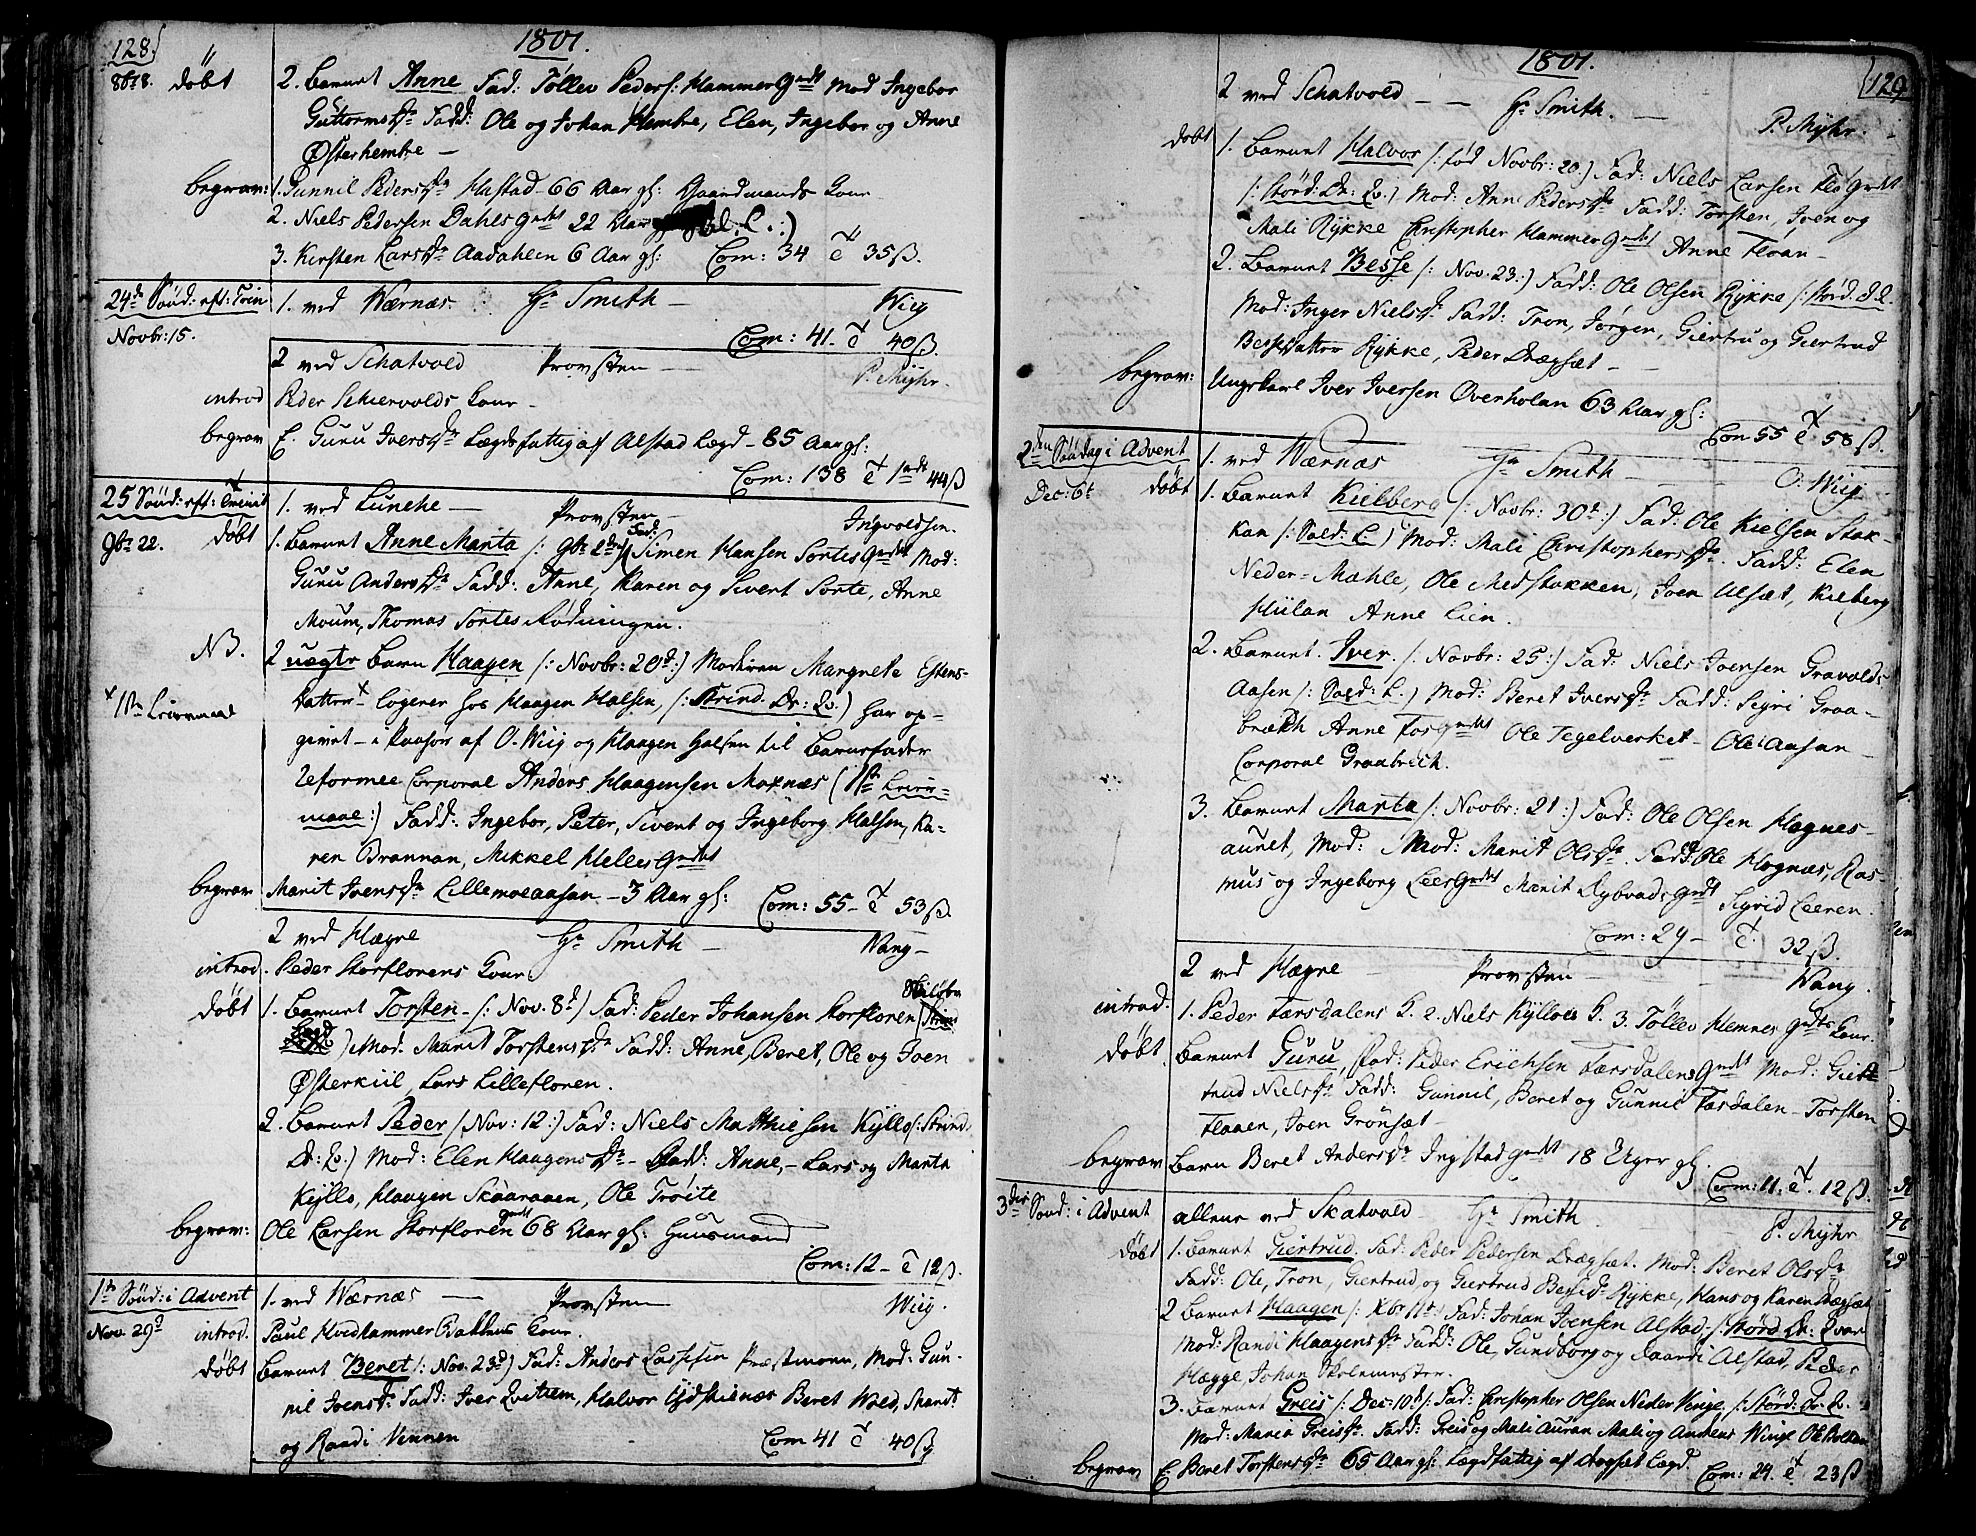 128.
1801.
8br 8. døbt 2. Barnet Anne Fad: Tollev Peders: Hammer Gndt Mod Ingebor
Guttormsdr Fadd: Ole og Johan Hembre, Elen, Ingebor og Anne
Østerhembre —
begrav: 1. Gunnil Pedersdr Hastad 66 Aar gl: Gaardmands Kone
2. Niels Pedersen Dahls Gndt 22 Aar
3. Kirsten Larsdr Aadahlen 6 Aar gl: Com: 34 35 ß.
24de Sønd: eft: Trin 1. ved Wærnæs Hr Smith — Wiig
Novbr: 15. Com: 41 40 ß.
2 ved Schatvold Provsten — P. Myhr.
introd Peder Schiervolds Kone —
begrav E. Guru Iversdr Lægdsfattig af Alstad Lægd — 85 Aar gl:
Com: 138 1 44 ß
25 Sønd: eft: Trinit 1. ved Lunche — Provsten — Ingvoldsen.
9br 22. døbt 1. Barnet Anne Marta /: 9br 2den :/ Fad: Simen Hansen Sortes Gndt Mod:
Guru Andersdr Fadd: Anne, Karen og Sivert Sorte, Anne
Moum, Thomas Sortes Rødningen.
NB. 2 uægte Barn Haagen /: Novbr: 20de :/ Moderen Margrete Estens-
datter x logerer hos Haagen Halsen, /: Strind. Dr: Qv: / har op-
x 1ste Leiermaal
givet — i Paasyn af O. Wiig og Haagen Halsen til Barnefader
reformee Corporal Anders Haagensen Moxnæs ( 1ste Leier-
maal :) Fadd: Ingebor, Peter, Sivert og Ingeborg Halsen, Ka-
ren Brannan, Mikkel Helles Gndt
begrav Marit Ivensdr Lillemoeaasan — 3 Aar gl: Com: 55 — 53 ß.
2 ved Hegre Hr Smith — Wang —
introd. Peder Storflorens Kone
døbt 1. Barnet Torsten — /: Nov. 8d / Fad: Peder Johansen Storfloren
) Mod. Marit Torstensdr Fadd: Anne, Beret, Ole og Joen
Østerkiil, Lars Lillefloren.
2. Barnet Peder / Nov: 12 :/ Fad: Niels Matthiesen Kyllo /: Strind.
Dr: Qv: ) Mod: Elen Haagensdr — Fadd: Anne, — Lars og Marta
Kyllo, Haagen Skaaraaen, Ole Trøite
begrav: Ole Larsen Storfloren Gndt 68 Aar gl: Huusmand
Com: 12 — 12 ß.
1te Sønd: i Advent 1. ved Wærnæs — Provsten Wiig.
Nov. 29d introd. Paul Hvidhammer Bakkens Kone.
døbt Barnet Beret /: Nov. 23d ) Fad: Anders Lassesen Præstmoen, Mod: Gun-
nil Joensdr Fadd: Iver Evitrem, Halvor Ydstienæs Beret Wold, Marit
og Randi Vinnen Com 41 40 ß
1801.
129
2 ved Schatvold — — Hr Smith. — P. Myhr.
døbt 1. Barnet Halvor /: fød Novbr: 20 ) Fad: Niels Larsen Flo Gndt
/: Størd: Dr: Qv: ) Mod: Anne Pedersdr Fadd: Torsten, Iven og
Mali Rykke Christopher Hammer Gndt Anne Floan —
2. Barnet Besse /: Nov. 23 :) Fadd: Ole Olsen Rykke /: Størd: d. L.
Mod: Inger Nielsdr Fadd: Tron, Jørgen, Giertru og Giertrud
Bessesdatter Rykke, Peder Drægset —
begrav: Ungkarl Iver Iversen Overholan 63 Aar gl:
Com 55 58 ß.
2den Søndag i Advent 1. ved Wærnæs Hr Smith — O: Wiig
Dec: 6t døbt 1. Barnet Kielberg /: Novbr: 30t :) Fad: Ole Kielsen Stok-
kan /: Sold: L: ) Mod: Mali Christophersdr. Fadd: Elen
Neder-Mæhle, Ole Medstokken, Joen Alsæt, Kielberg
Hiilan Anne Lien.
2. Barnet. Iver. /: Novbr: 25 :) Fad: Niels Joensen Gravolds
Aasen /: Sold: L. ) Mod: Beret Iversdr Fadd: Sigri Graa-
brækk Anne Fos Gndt Ole Tegelverket — Ole Aasan —
Corporal Graabreck.
3. Barnet Marta /: Novbr: 21 :) Fad: Ole Olsen Hognes-
aunet, Mod: Mod: Marit Olsdr. Fadd: Ole Hognæs, Ras-
mus og Ingeborg Leers Gndt Marit Rybvads Gndt Sigrid Leeren.
Com: 29 — 32 ß.
2 ved Hegre — Provsten — Wang.
introd. 1. Peder Færsdalens K. 2. Niels Kylloes K. 3. Tollev Hemnes Gndts Kone.
døbt Barnet Guru, Fad: Peder Erichsen Færsdalens Gndt Mod: Gier-
trud Nielsdr Fadd: Gunnil, Beret og Gunnil Færsdalen — Torsten
Flaaen, Joen Grønset —
begrav Barn Beret Andersdr Ingstad Gndt 18 Uger gl.
Com: 11. 12 ß.
3die Sønd: i Advent allene ved Skatvold — Hr Smith. P. Myhr
døbt 1. Barnet Giertrud. Fad: Peder Pedersen Drægset. Mod: Beret Olsdr
Fadd: Ole, Tron, Giertrud og Giertrud Bessesdr Rykke, Hans og Karen Drægset
2 Barnet Haagen /: Xbr 11t :) Fad: Johan Joensen Alstad /: Størd: Dr: Qvar
Mod: Randi Haagensdr Fadd: Ole, Gundborg og Saardi Alstad, Peder
Hægge, Johan Skolemester.
3. Barnet Greis /: Dec: 10d / Fad: Christopher Olsen Neder Vinge /: Størd: Dr. Qv.
Mod: Maria Greisdr. Fadd: Greis og Mali Auran Mali og Anders Winge Ole Bolkan
begrav E. Beret Torstensdr 65 Aar gl: Lægdsfattig af Drogset Lægd. Com: 24. 23 ß